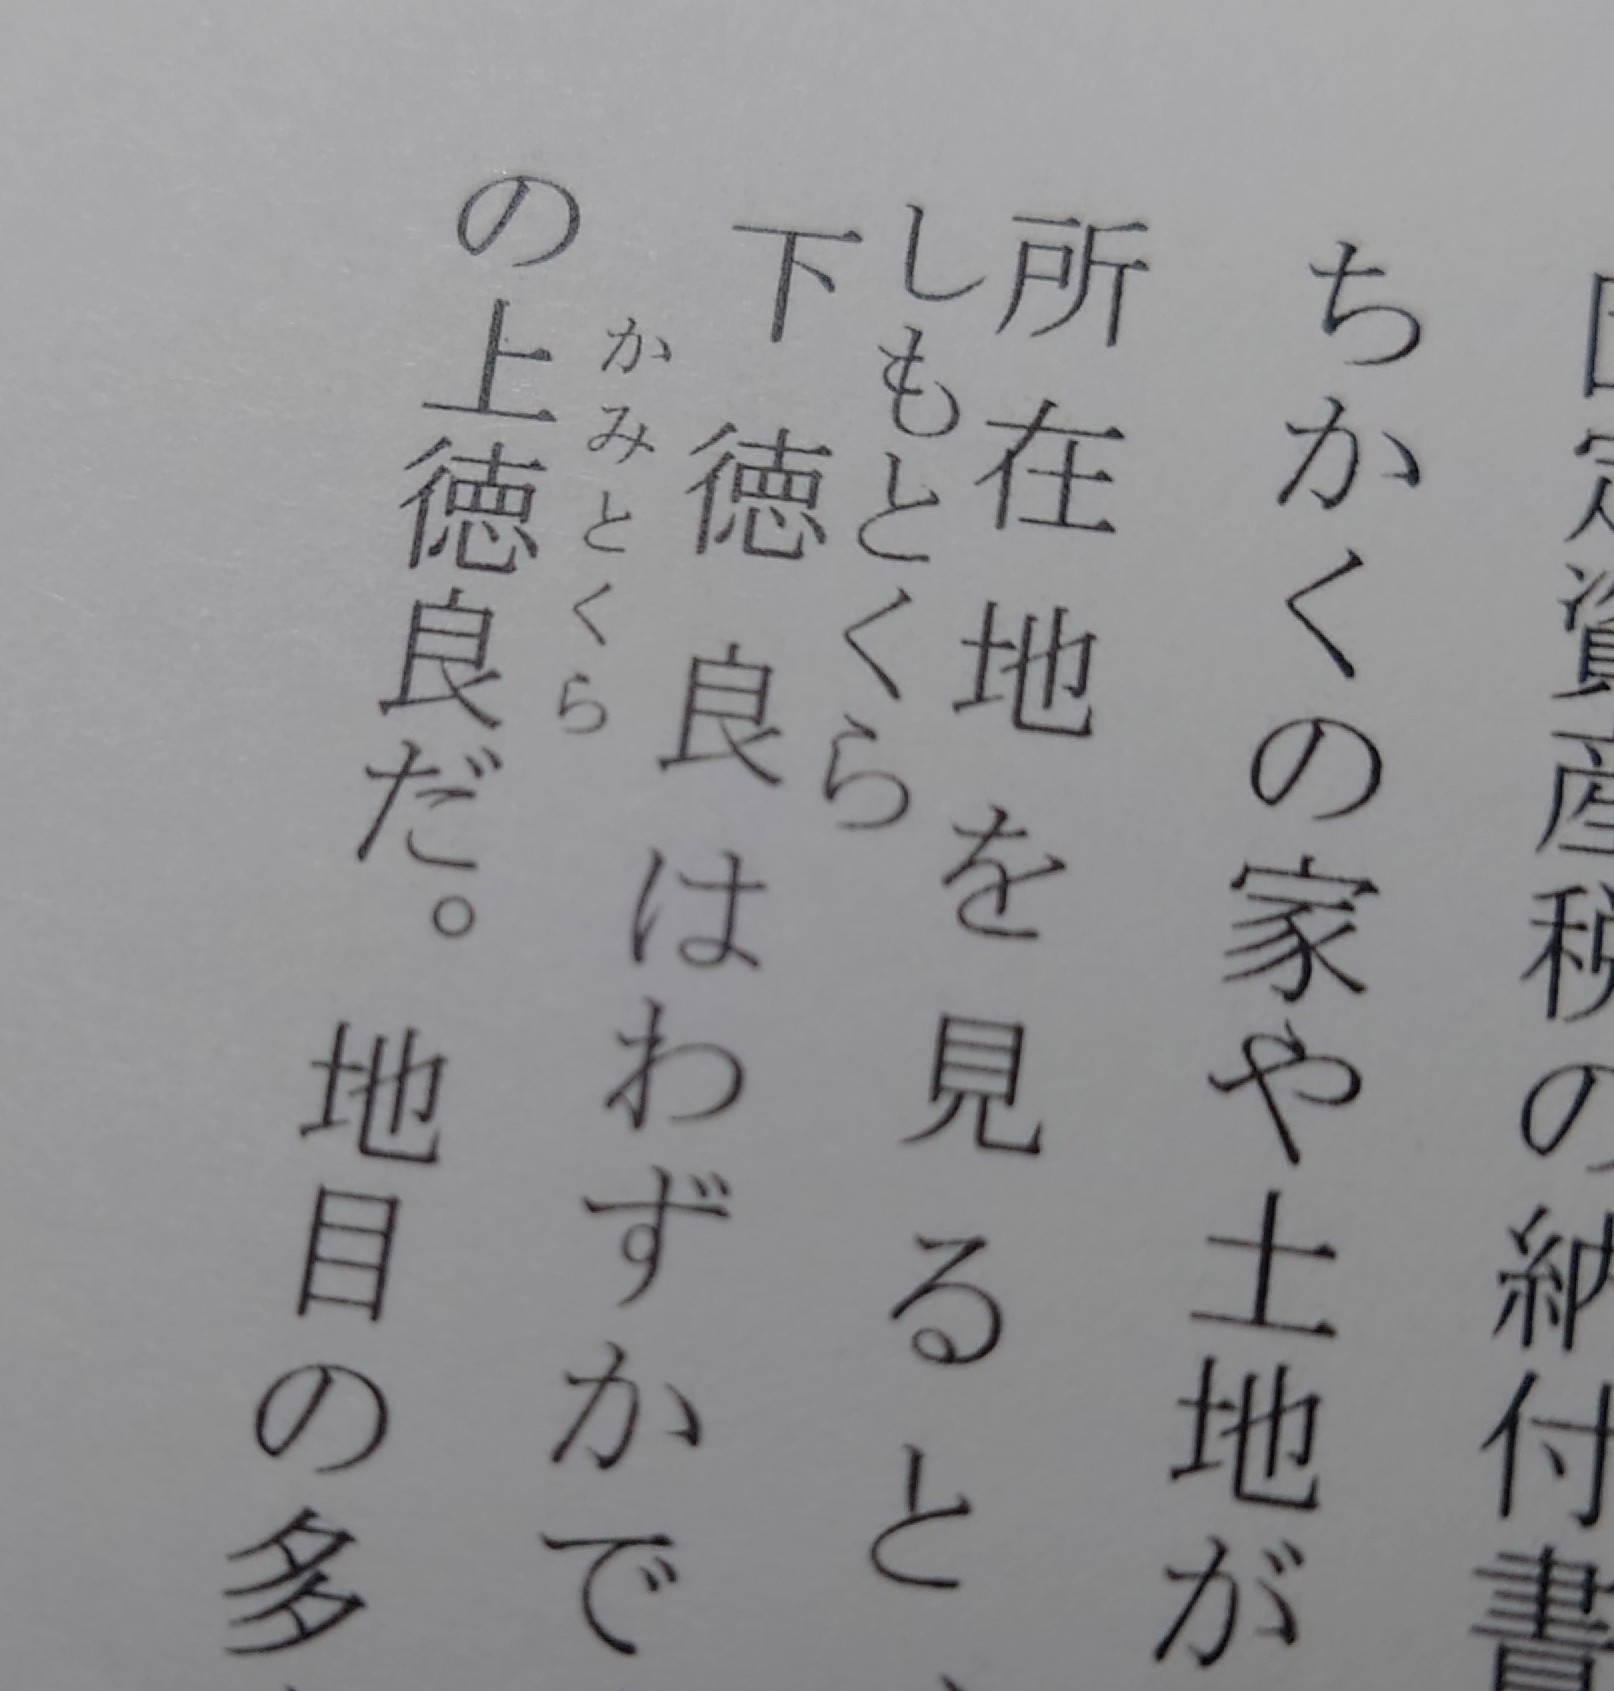 定資産税の納付書
ちかくの家や土地が
所在地を見ると
しもとくら
下徳良はわずかで
かみとくら
の上徳良だ。地目の多